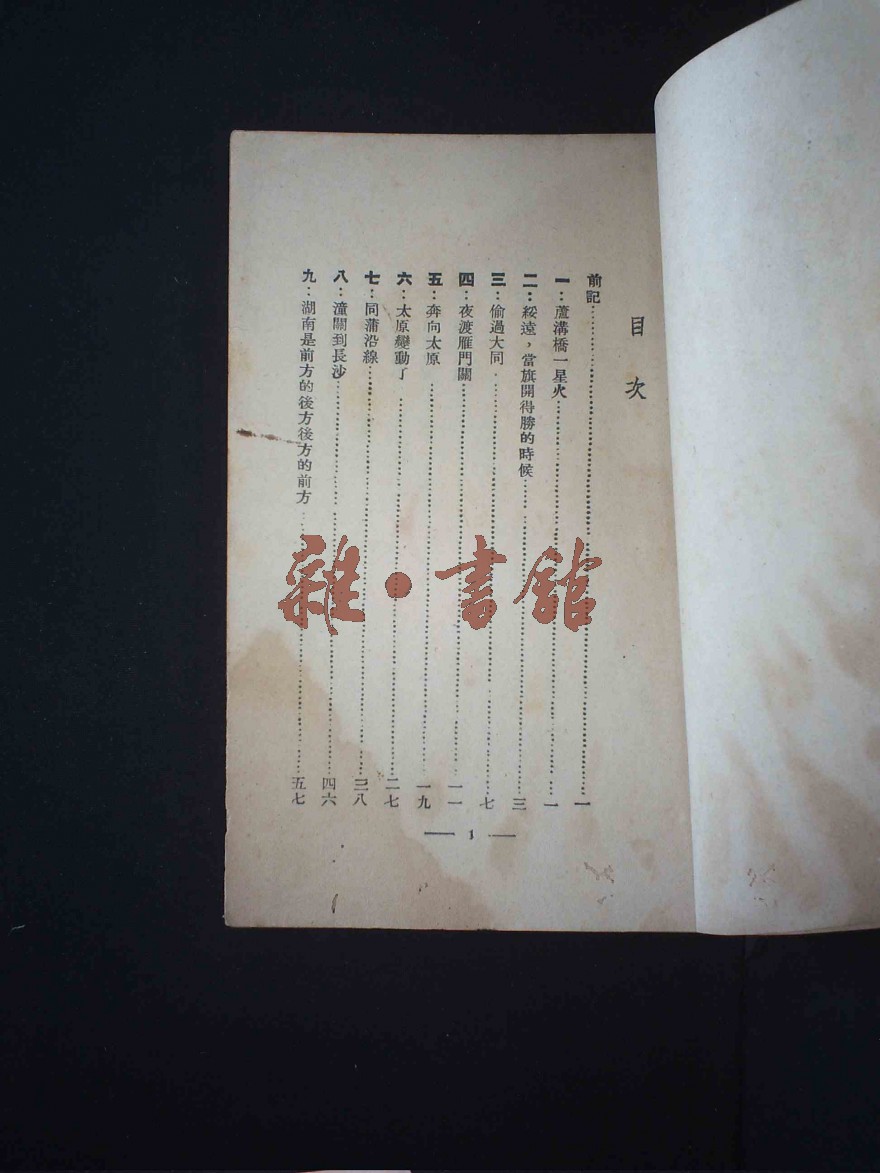 目次
前記……一
一：蘆溝橋一星火……一
二：綏遠，當旗開得勝的時候……三
三：偷過大同……七
四：夜渡雁門關……一一
五：奔向太原……一九
六：太原變動了……二七
七：同蒲沿線……三八
八：潼關到長沙……四六
九：湖南是前方的後方後方的前方……五七
— 1 —
雜•書館